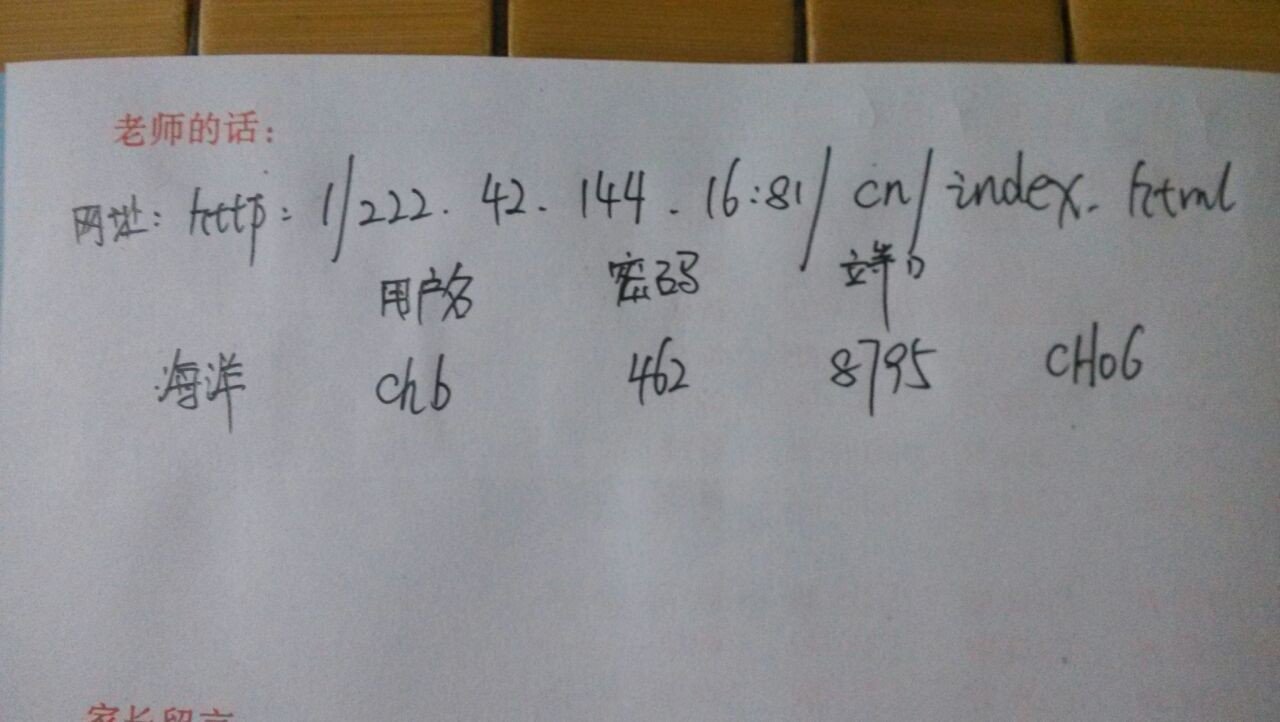 老师的话：
网址：http：//222.42.144.16:81/cn/index.html
用户名 密码 端口
海洋 chb 462 8795 CH06
家长留言